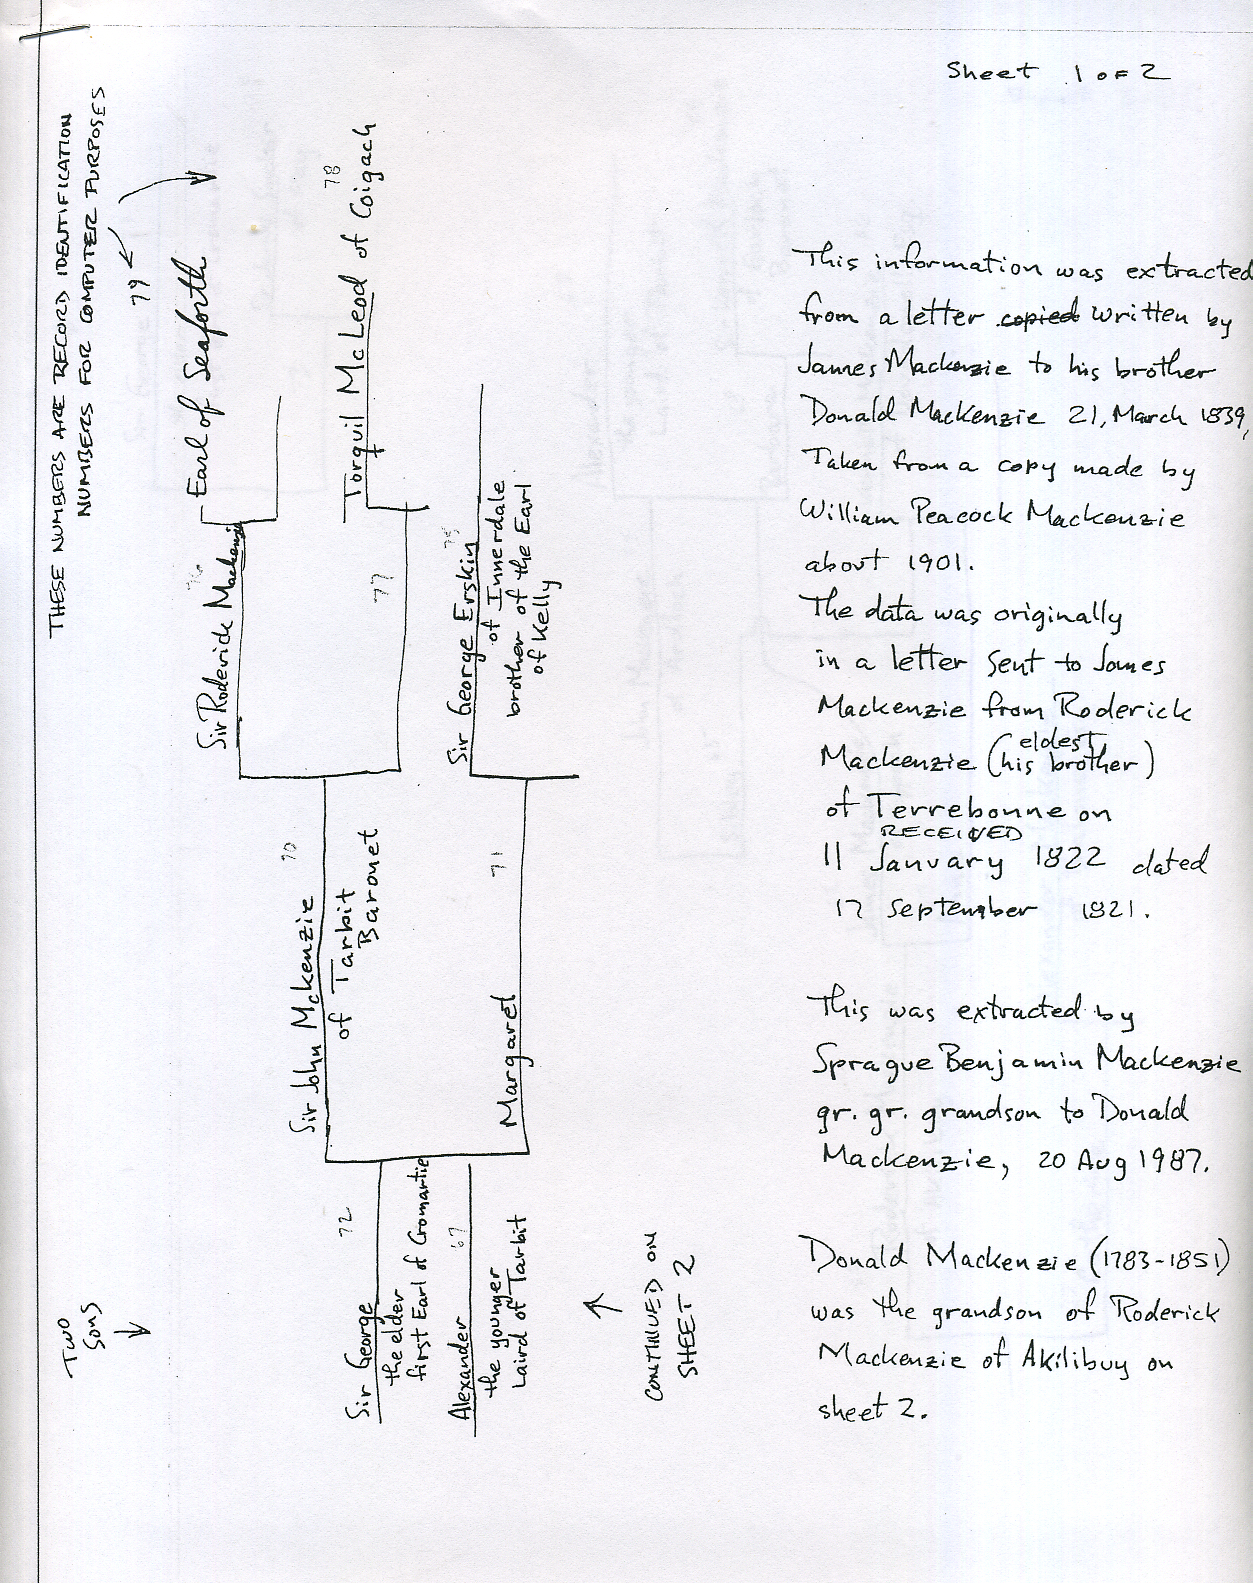 Sheet 1 OF 2
THESE NUMBERS ARE RECORD IDENTIFICATION
NUMBERS FOR COMPUTER PURPOSES
79
Earl of Seaforth
78
Torquil McLeod of Coigach
76
Sir Roderick Mackenzie
77
75
Sir George Erskin
of Innerdale
brother of the Earl
of Kelly
70
Sir John Mckenzie
of Tarbit
Baronet
71
Margaret
TWO
SONS
72
Sir George
the elder
first Earl of Cromartie
67
Alexander
the younger
Laird of Tarbit
CONTINUED ON
SHEET 2
This information was extracted
from a letter copied written by
James Mackenzie to his brother
Donald Mackenzie 21, March 1839,
Taken from a copy made by
William Peacock Mackenzie
about 1901.
The data was originally
in a letter sent to James
Mackenzie from Roderick
eldest
Mackenzie (his brother)
of Terrebonne on
RECEIVED
11 January 1822 dated
17 September 1821.
This was extracted by
Sprague Benjamin Mackenzie
gr. gr. grandson to Donald
Mackenzie, 20 Aug 1987.
Donald Mackenzie (1783-1851)
was the grandson of Roderick
Mackenzie of Akilibuy on
sheet 2.